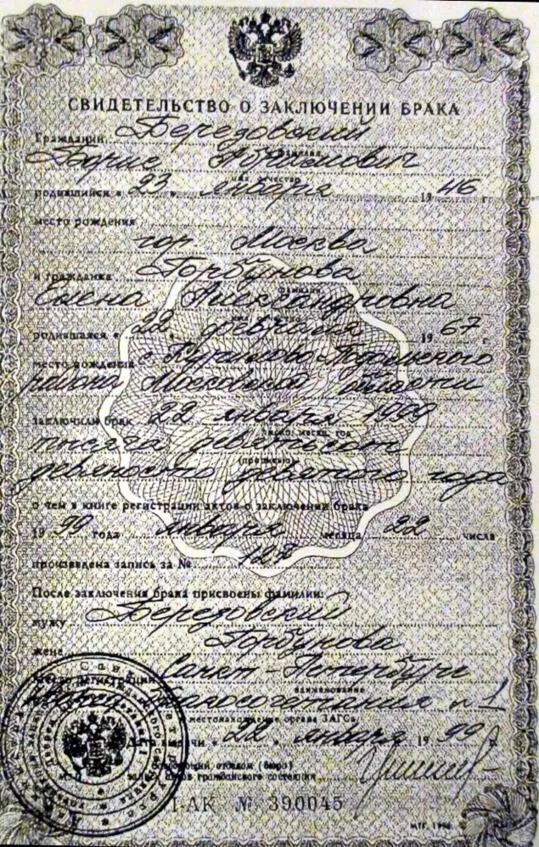 СВИДЕТЕЛЬСТВО О ЗАКЛЮЧЕНИИ БРАКА
Гражданин Березовский
фамилия
Борис Абрамович
имя, отчество
родившийся « 23 » января 19 46 г.
место рождения
гор. Москва
и гражданка Горбунова
фамилия
Елена Александровна
имя, отчество
родившаяся « 22 » 19 67 г.
место рождения
района Московской области
заключили брак 22 января 1999
число, месяц, год
тысяча девятьсот
(прописью)
девяносто девятого года
о чем в книге регистрации актов о заключении брака
19 99 года января месяца 22 числа
произведена запись за №
После заключения брака присвоены фамилии:
мужу Березовский
жене Горбунова
Место регистрации Санкт-Петербург
наименование
бракосочетания
и местонахождение органа ЗАГСа
Дата выдачи « 22 » января 19 99 г.
Заведующий отделом (бюро)
записи актов гражданского состояния
I-АК № 390045
МТГ. 1996.